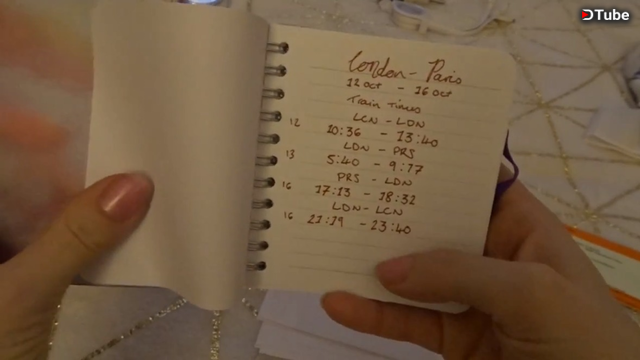 DTube
London - Paris
12 Oct - 16 Oct
Train Times
LCN - LDN
12 10:36 - 13:40
LDN - PRS
13 5:40 - 9:17
PRS - LDN
16 17:13 - 18:32
LDN - LCN
16 21:19 - 23:40